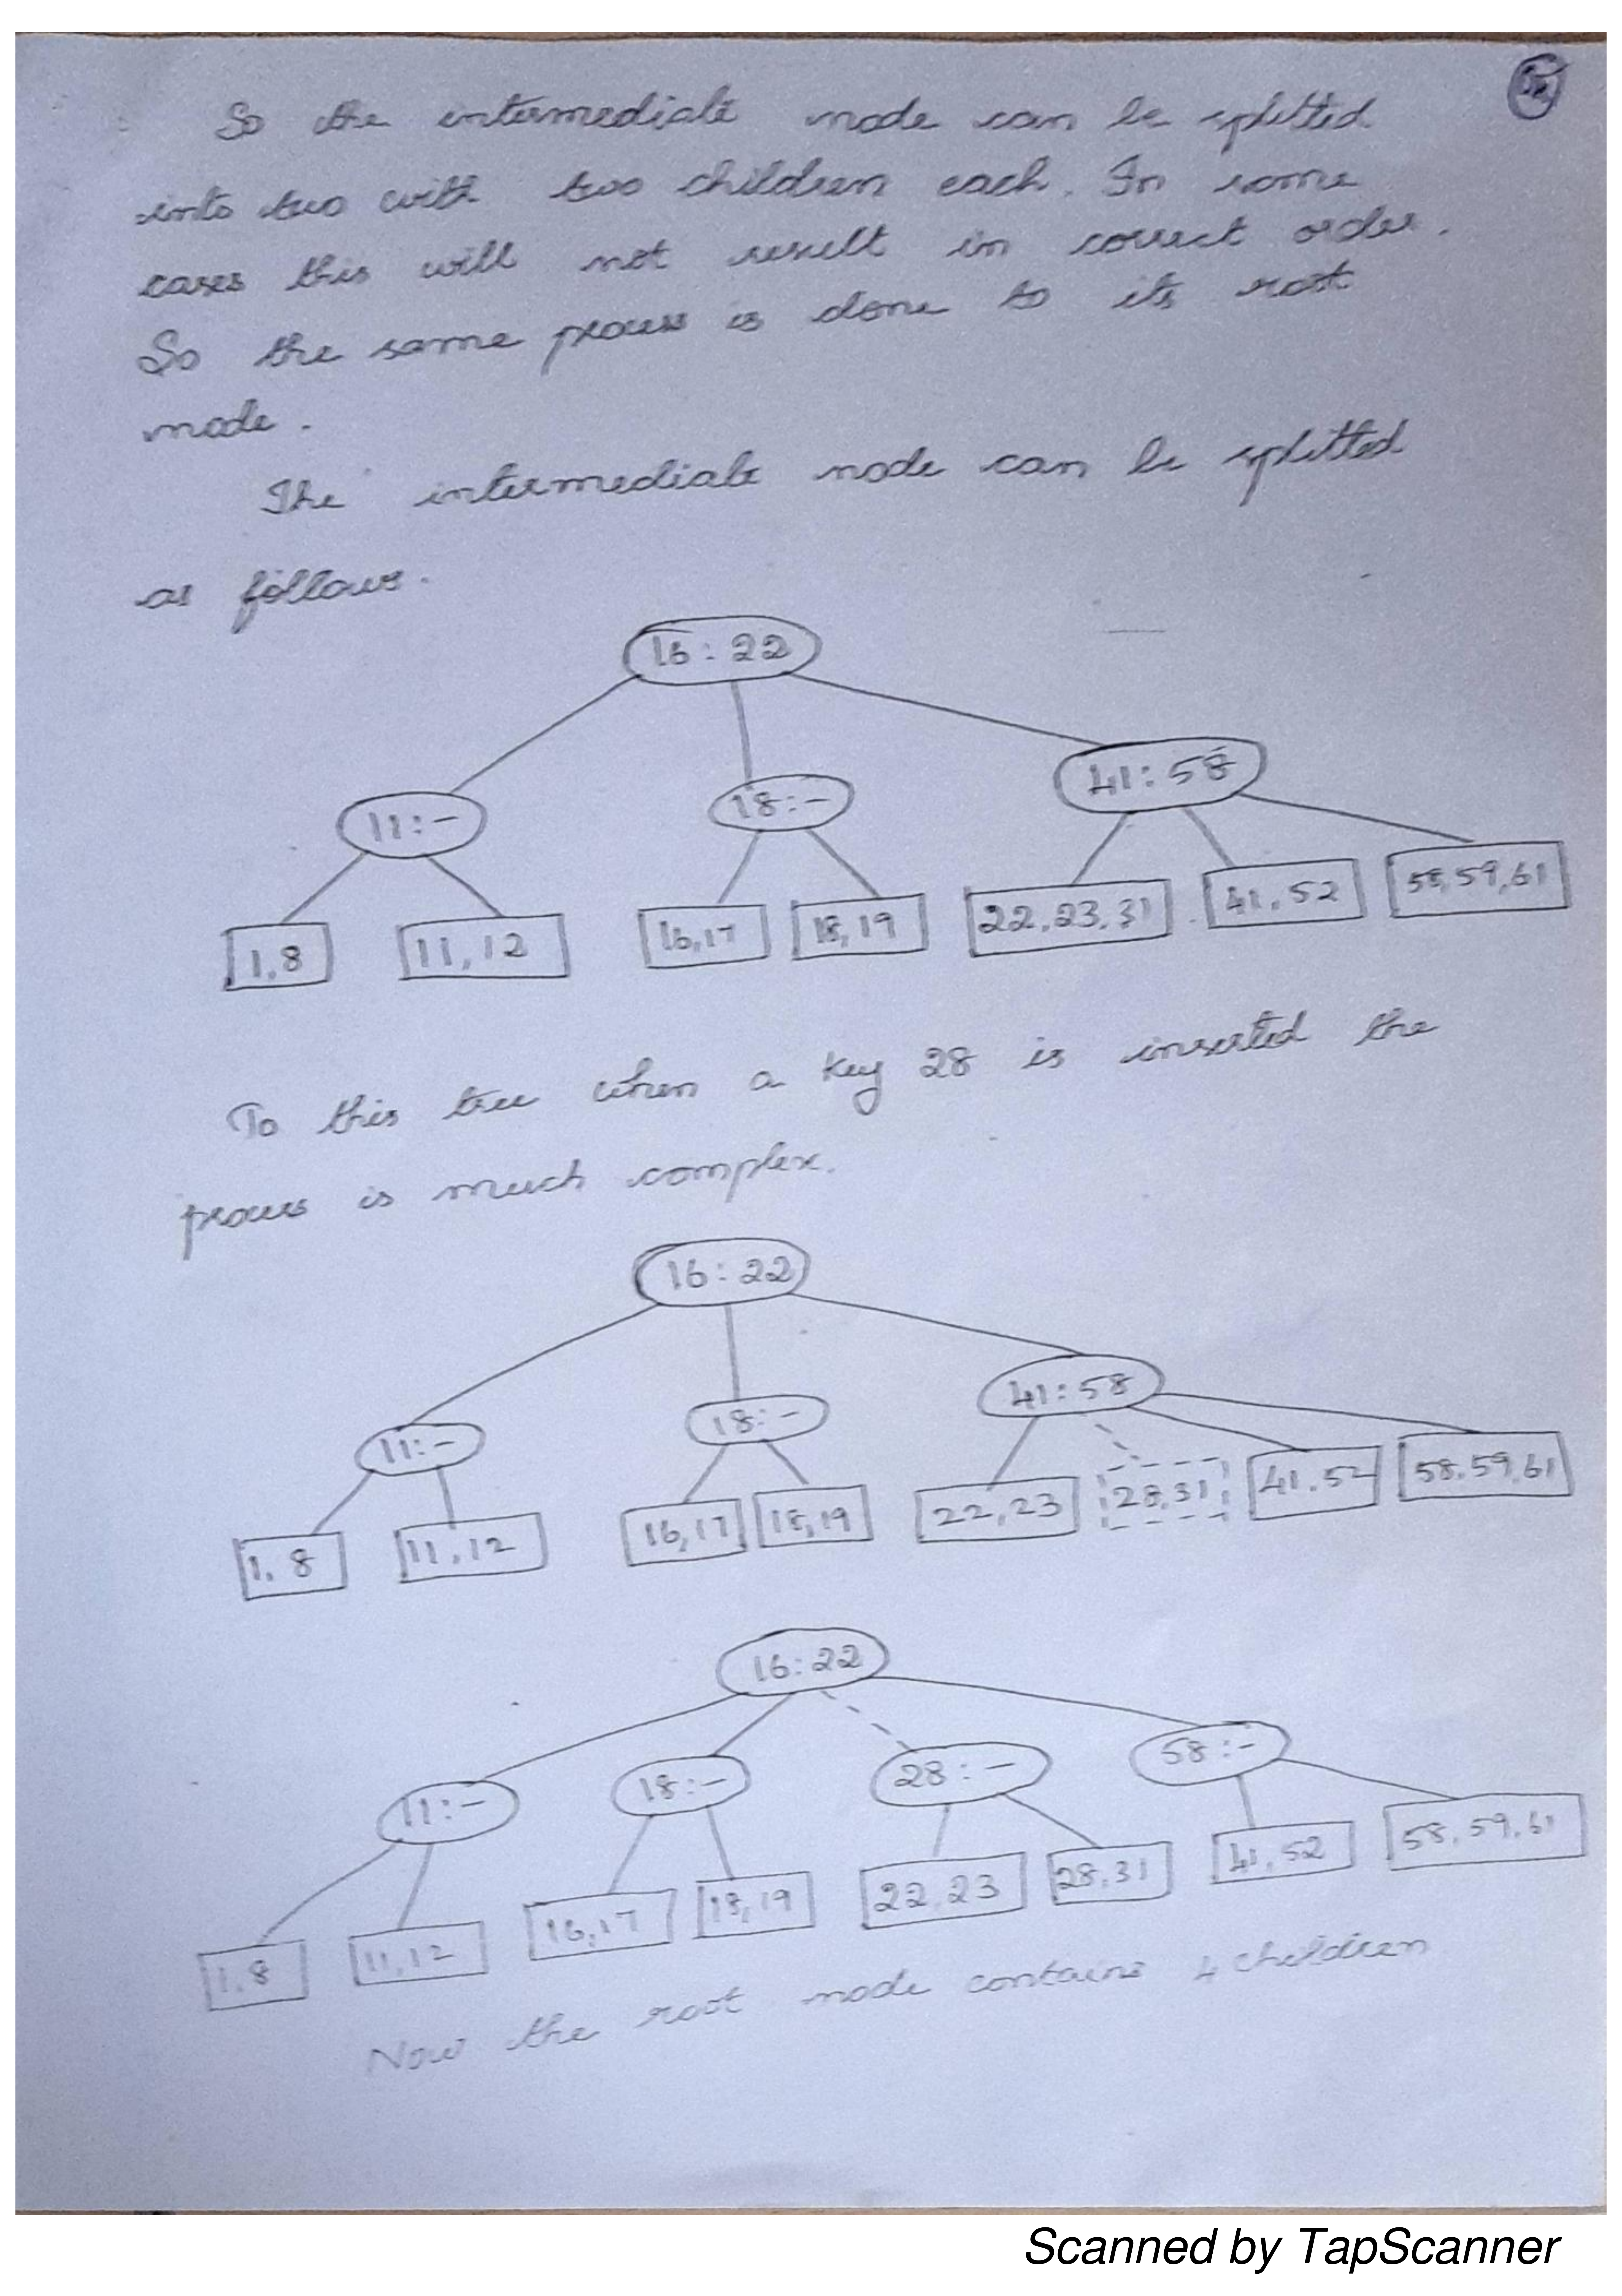 So the intermediate node can be splitted
into two with two children each. In some
cases this will not result in correct order.
So the same process is done to its root
node.
The intermediate node can be splitted
as follows.
16:22
11:- 18:- 41:58
1,8 11,12 16,17 18,19 22,23,31 41,52 58,59,61
To this tree when a key 28 is inserted the
process is much complex.
16:22
11:- 18:- 41:58
1,8 11,12 16,17 18,19 22,23 28,31 41,52 58,59,61
16:22
11:- 18:- 28:- 58:-
1,8 11,12 16,17 18,19 22,23 28,31 41,52 58,59,61
Now the root node contains 4 children
Scanned by TapScanner